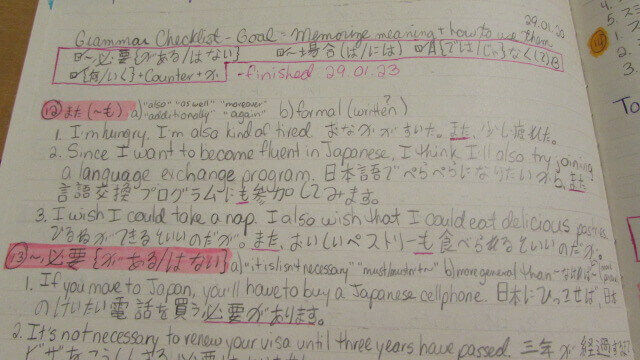 29.01.20
Grammar Checklist - Goal = Memorize meaning + how to use them
~必要{がある/はない} ~場合(ば/には) A{では/じゃ}なくて(B)
+ Counter + か - finished 29.01.23
⑫また(~も) a) "also" "as well" "moreover" "additionally" "again" b) formal (written?)
1. I'm hungry. I'm also kind of tired. おなかがすいた。また、少し疲れた。
2. Since I want to become fluent in Japanese, I think I'll also try joining
a language exchange program. 日本語でぺらぺらになりたいから、また
言語交換プログラムにも参加してみます。
3. I wish I could take a nap. I also wish that I could eat delicious pastries.
ひるねができるといいのだが。また、おいしいペストリーも食べられるといいのだが。
⑬~必要{がある/はない} a) "it is/isn't necessary" b) more general than
1. If you move to Japan, you'll have to buy a Japanese cellphone. 日本にひっこせば、日本
のけいたい電話を買う必要があります。
2. It's not necessary to renew your visa until three years have passed. 三年が経過
ビザを
To